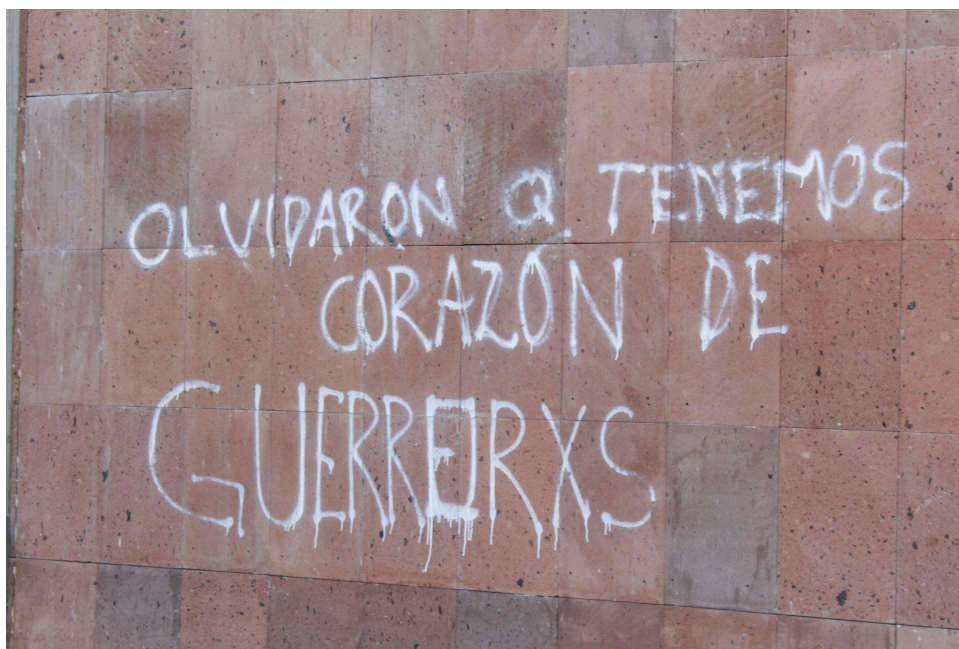 OLVIDARON Q TENEMOS
CORAZÓN DE
GUERRERXS